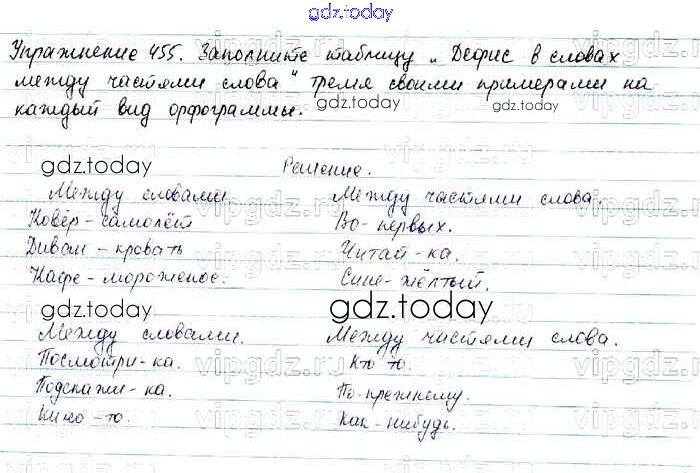 gdz.today
Упражнение 455. Заполните таблицу „Дефис в словах
между частями слова" тремя своими примерами на
каждый вид орфограммы.
gdz.today
gdz.today
Решение.
Между словами Между частями слова.
Ковёр-самолёт Во-первых.
Диван-кровать Читай-ка.
Кафе-мороженое. Сине-жёлтый.
gdz.today gdz.today
Между словами. Между частями слова.
Посмотри-ка. Кто то.
Подскажи-ка. По-прежнему.
Кино-то. Как-нибудь.